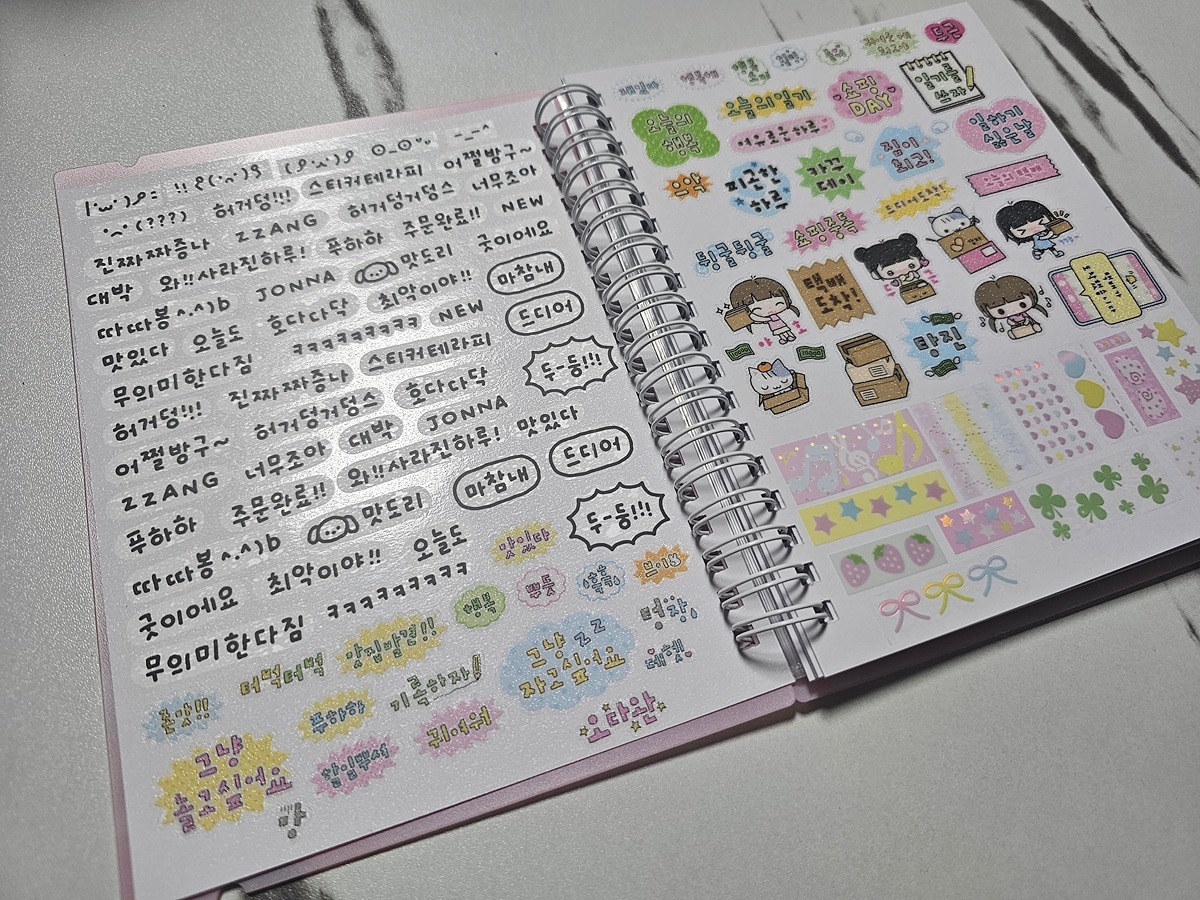 |·ω·)و :: !! ५(·᷄·᷅)९ (و'ω')و ⊙_⊙";; -_-^
·᷄·᷅(???) 허거덩!!! 스티커테라피 어쩔방구~
진짜짜증나 ZZANG 허거덩거덩스 너무조아
대박 와!!사라진하루! 푸하하 주문완료!! NEW
따따봉^.^)b JONNA 맛도리 굿이에요
맛있다 오늘도 호다다닥 최악이야!! 마참내
무의미한다짐 ㅋㅋㅋㅋㅋㅋㅋ NEW 드디어
허거덩!!! 진짜짜증나 스티커테라피
어쩔방구~ 허거덩거덩스 호다다닥 두-둥!!!
ZZANG 너무조아 대박 JONNA
푸하하 주문완료!! 와!!사라진하루! 맛있다
따따봉^.^)b 맛도리 마참내 드디어
굿이에요 최악이야!! 오늘도 두-둥!!!
무의미한다짐 ㅋㅋㅋㅋㅋㅋㅋ 맛있다
행복 뿌듯
존맛!! 터벅터벅 맛집발견!! 텅장
푸하하 기록하자! 그냥 zz
자고싶어요
그냥
놀고싶어요 귀여워 오다완
두근
오늘의
행복 오늘의일기 쇼핑
DAY 일기를
쓰자
여유로운하루 일하기
싫은날
으악 피곤한
하루 다꾸
데이 집이
최고! 오늘의 택배
뒹굴뒹굴 쇼핑중독 드디어도착!
택배
도착!
탕진
10000 10000